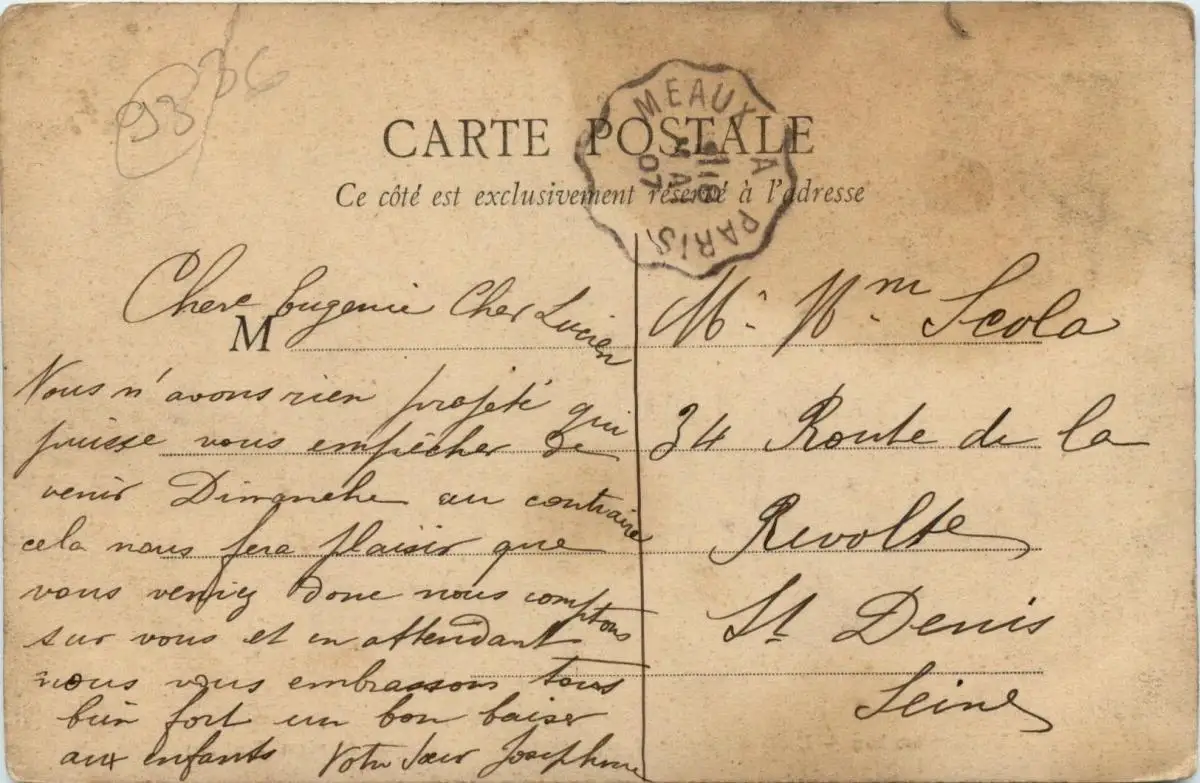 93 36
MEAUX A PARIS
MAI
07
CARTE POSTALE
Ce côté est exclusivement réservé à l'adresse
Chere Eugenie Cher Lucien
M
Nous n'avons rien projeté qui
puisse vous empêcher de
venir Dimanche au contraire
cela nous fera plaisir que
vous veniez donc nous comptons
sur vous et en attendant
nous vous embrassons tous
bien fort un bon baiser
aux enfants Votre Sœur Josephine
Mr. Mm Scola
34 Route de la
Revolte
St Denis
Seine